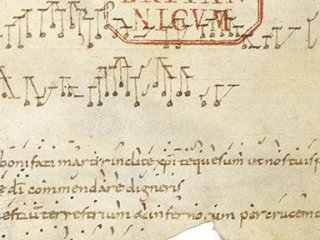 BRITAN
NICVM
bonifati martyr inclite xpi te quesumus ut nos tuis
e di commendare digneris
estium terrestrium & infernorum per crucem